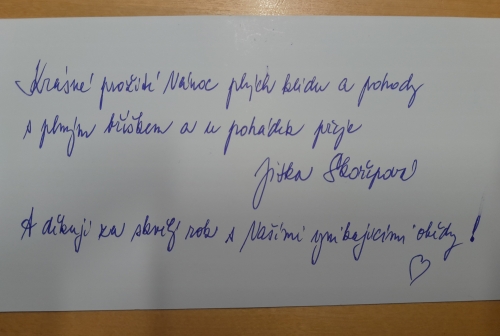 Krásné prožití Vánoc plných klidu a pohody
s plným bříškem a u pohádek přeje
Jitka Skořepová
A děkuji za skvělý rok s Vašimi vynikajícími obědy!
♡